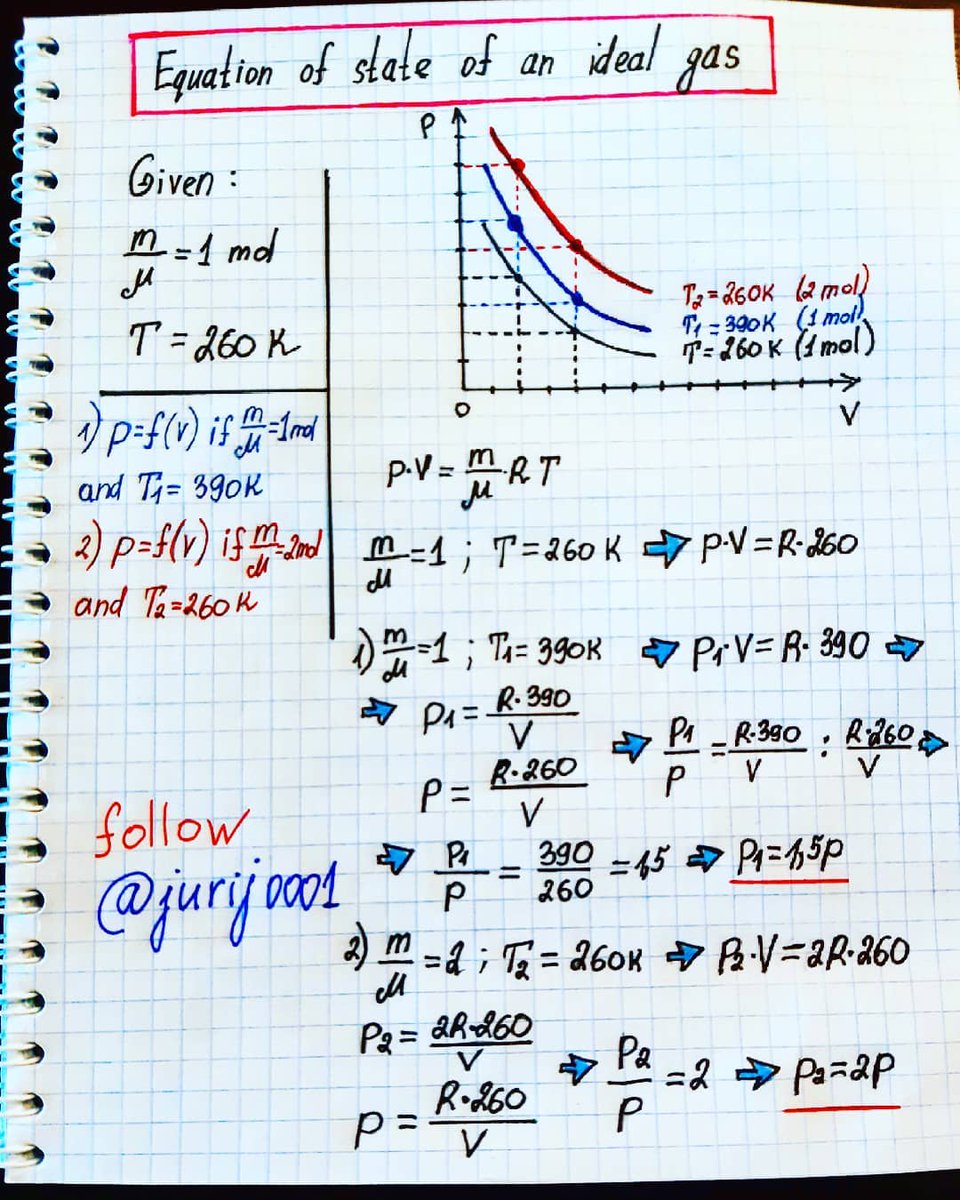 Equation of state of an ideal gas
Given:
m/μ = 1 mol
T = 260 K
1) p=f(v) if m/μ=1mol
and T₁= 390K
2) p=f(v) if m/μ=2mol
and T₂=260K
P
0
V
T₂=260K (2 mol)
T₁=390K (1 mol)
T=260K (1 mol)
p·V = m/μ·RT
m/μ=1 ; T=260K ➡ p·V=R·260
1) m/μ=1 ; T₁=390K ➡ p₁·V=R·390 ➡
➡ p₁ = R·390/V
p = R·260/V
➡ p₁/p = R·390/V : R·260/V ➡
➡ p₁/p = 390/260 = 1,5 ➡ p₁=1,5p
2) m/μ=2 ; T₂=260K ➡ p₂·V=2R·260
p₂ = 2R·260/V
p = R·260/V
➡ p₂/p = 2 ➡ p₂=2p
follow
@jurij0001